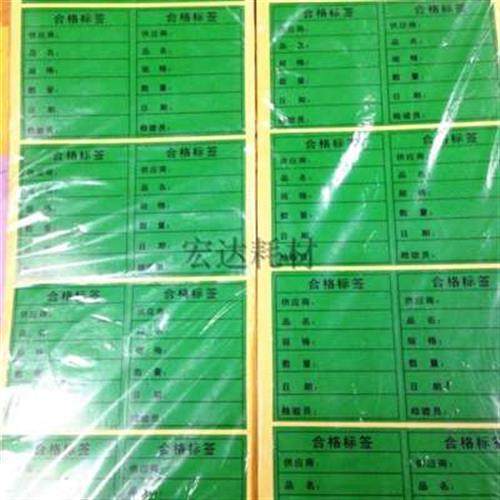 合格标签 合格标签
供应商： 供应商：
品名： 品名：
规格： 规格：
数量： 数量：
日期： 日期：
检验员： 检验员：
合格标签 合格标签
供应商： 供应商：
品名： 品名：
规格： 规格：
数量： 数量：
日期： 日期：
检验员： 检验员：
合格标签 合格标签
供应商： 供应商：
品名： 品名：
规格： 规格：
数量： 数量：
日期： 日期：
检验员： 检验员：
合格标签 合格标签
供应商： 供应商：
品名： 品名：
合格标签 合格标签
供应商： 供应商：
品名： 品名：
规格： 规格：
数量： 数量：
日期： 日期：
检验员： 检验员：
合格标签 合格标签
供应商： 供应商：
品名： 品名：
规格： 规格：
数量： 数量：
日期： 日期：
检验员： 检验员：
合格标签 合格标签
供应商： 供应商：
品名： 品名：
规格： 规格：
数量： 数量：
日期： 日期：
检验员： 检验员：
合格标签 合格标签
供应商： 供应商：
品名： 品名：
宏达耗材